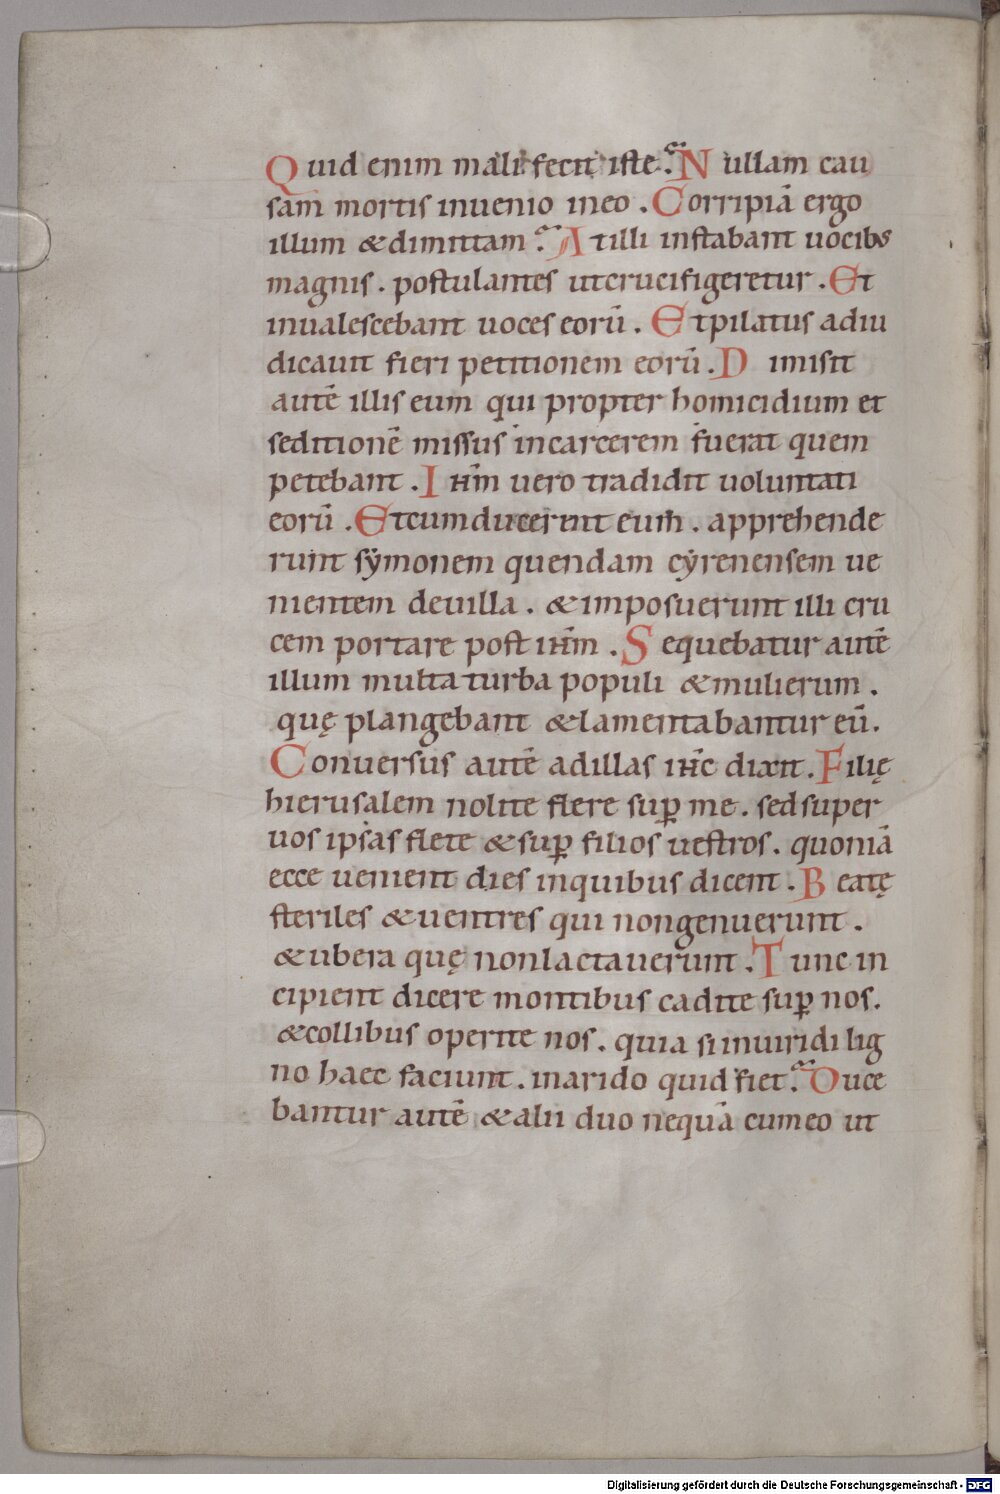 Quid enim mali fecit iste. Nullam cau
sam mortis inuenio ineo. Corripiā ergo
illum & dimittam. Atilli instabant uocibs
magnis. postulantes utcrucifigeretur. Et
inualescebant uoces eorū. Etpilatus adiu
dicauit fieri petitionem eorū. Dimisit
autē illis eum qui propter homicidium et
seditionē missus incarcerem fuerat quem
petebant. Iħm uero tradidit uoluntati
eorū. Etcumducerent eum. apprehende
runt sẏmonem quendam cẏrenensem ue
nientem deuilla. & imposuerunt illi cru
cem portare post iħm. Sequebatur autē
illum multa turba populi & mulierum.
quę plangebant & lamentabantur eū.
Conuersus autē adillas iħc dixit. Filię
hierusalem nolite flere suꝑ me. sedsuper
uos ipsas flete & suꝑ filios uestros. quoniā
ecce uenient dies inquibus dicent. Beatę
steriles & uentres qui nongenuerunt.
& ubera quę nonlactauerunt. Tunc in
cipient dicere montibus cadite suꝑ nos.
& collibus operite nos. quia si inuiridi lig
no haec faciunt. inarido quid fiet. Duce
bantur autē & alii duo nequā cumeo ut
Digitalisierung gefördert durch die Deutsche Forschungsgemeinschaft - DFG